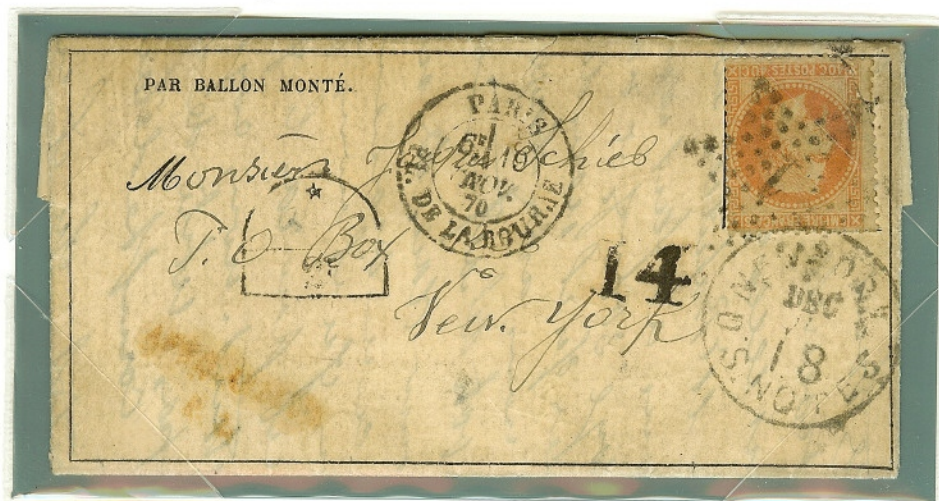 PAR BALLON MONTÉ.
PARIS
6E
NOV.
70
PL. DE LA BOURSE
Monsieur
P. O Box
New York
14
NEW YORK
DEC
18
U.S. NOTES